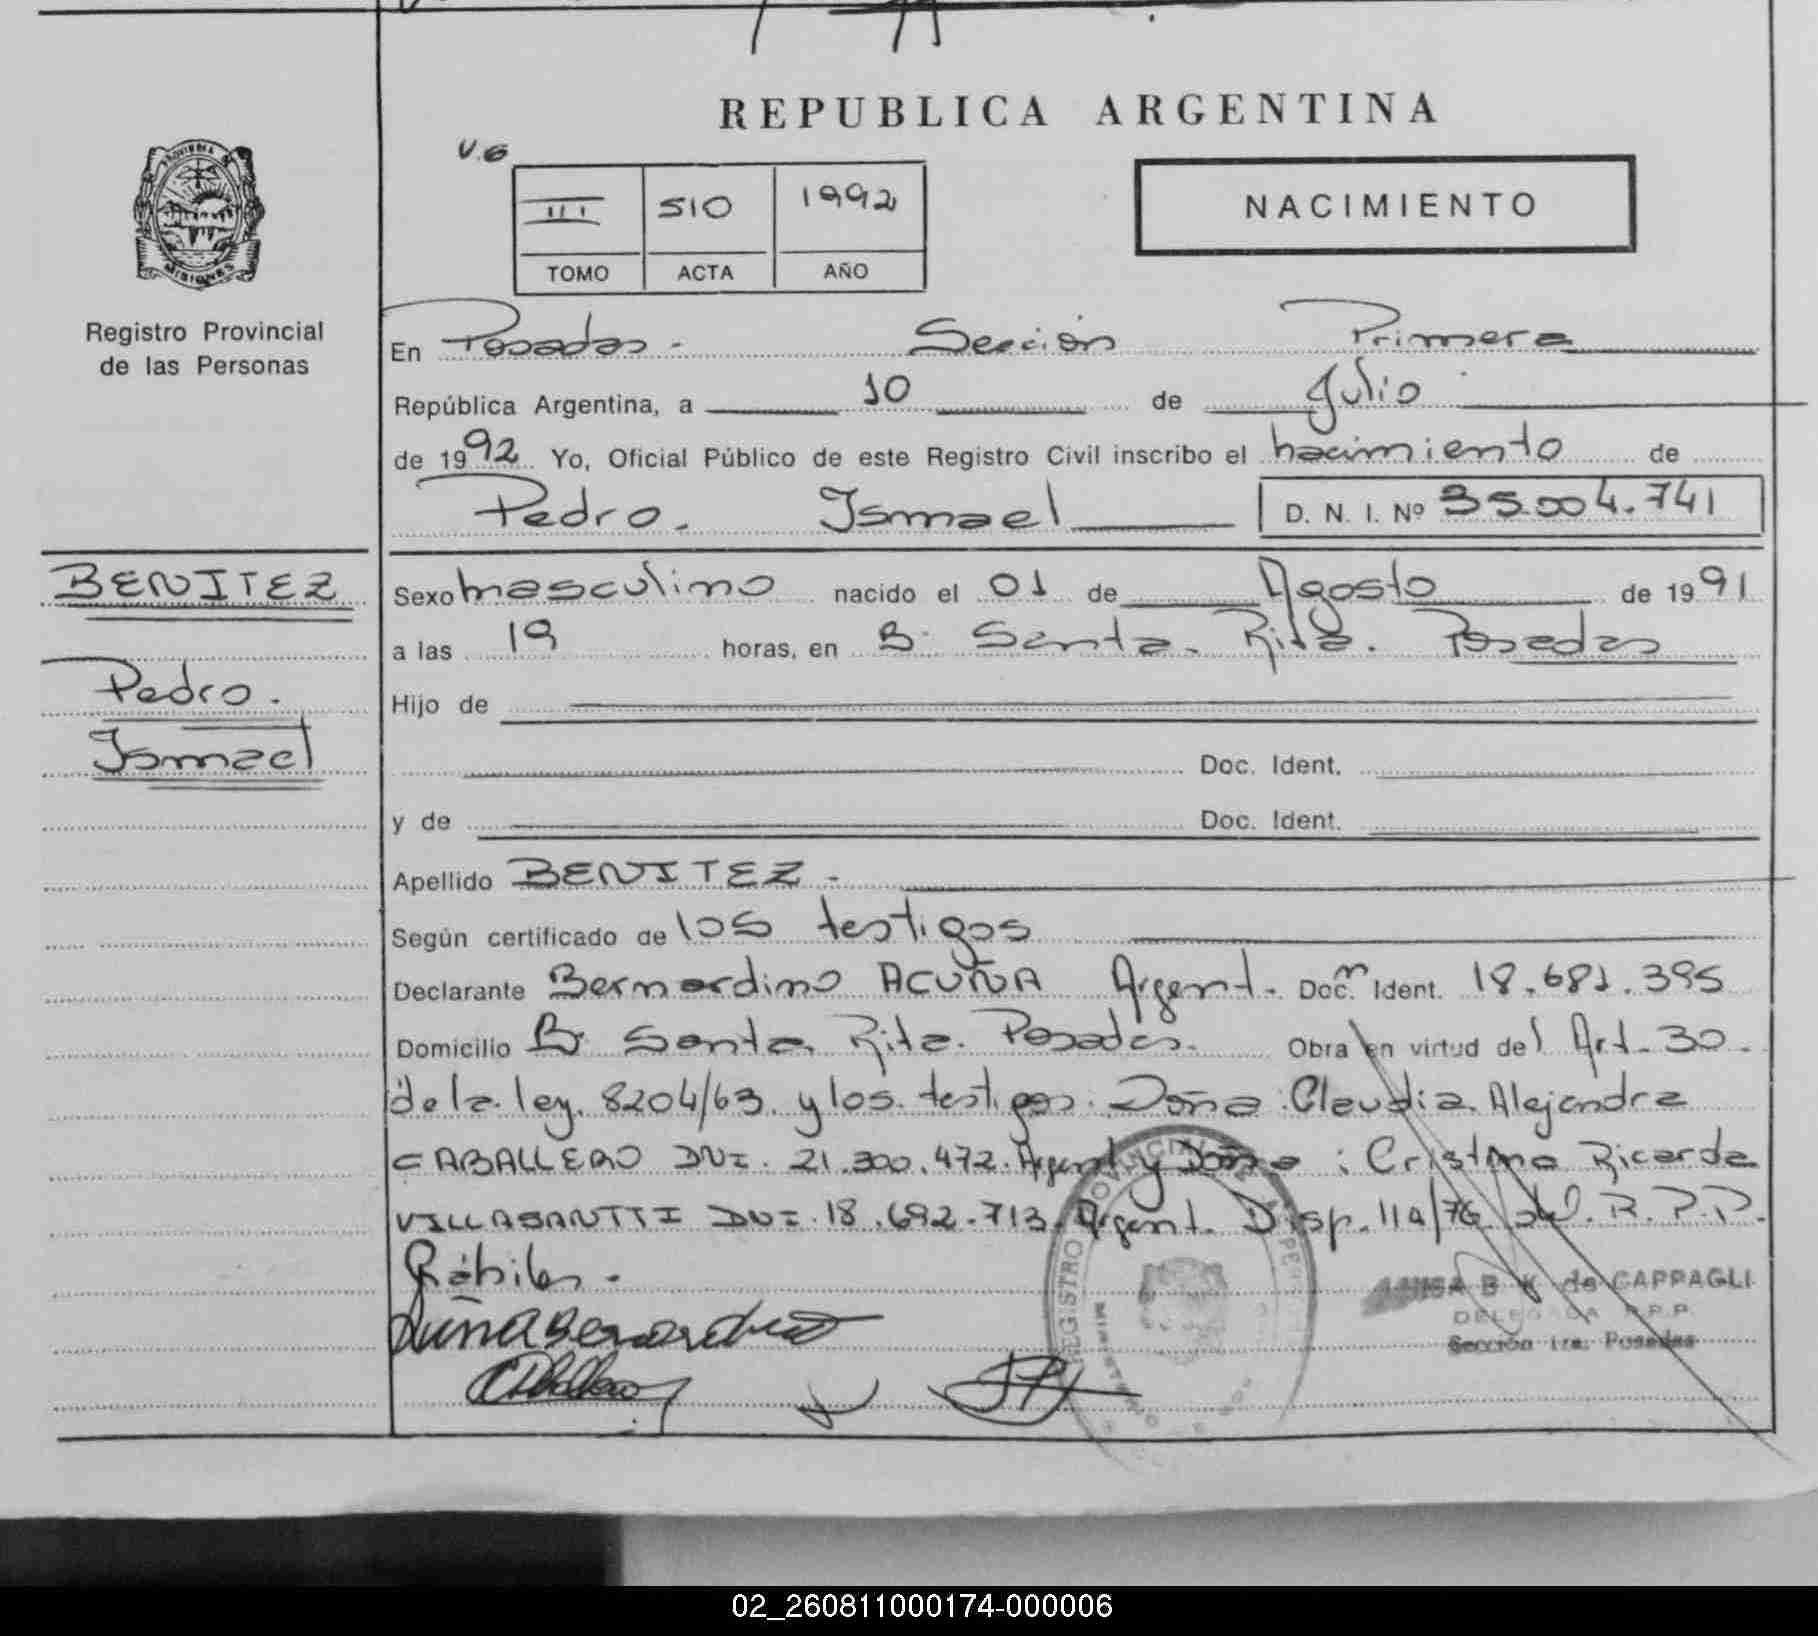 REPUBLICA ARGENTINA
V.G
PROVINCIA DE
MISIONES
III 510 1992
TOMO ACTA AÑO
NACIMIENTO
Registro Provincial
de las Personas
En Posadas. Sección Primera
República Argentina, a 10 de Julio
de 1992 Yo, Oficial Público de este Registro Civil inscribo el nacimiento de
Pedro. Ismael D. N. I. Nº 35.004.741
BENITEZ
Pedro.
Ismael
Sexo masculino nacido el 01 de Agosto de 1991
a las 19 horas, en B. Santa. Rita. Posadas
Hijo de
Doc. Ident.
y de Doc. Ident.
Apellido BENITEZ.
Según certificado de los testigos
Declarante Bernardino ACUÑA Argent. Doc. Ident. 18.681.395
Domicilio B. Santa Rita. Posadas. Obra en virtud del Art. 30.
de la ley. 8204/63. y los testigos: Doña: Claudia Alejandra
CABALLERO DNI. 21.300.472. Argent y Doña: Cristina Ricarda
VILLASANTTI DNI. 18.692.713. Argent. Disp. 114/76 del. R.P.P.
Rábiles.
B K de CAPPAGLI
DELEGADA R.P.P.
Sección 1ra. Posadas
REGISTRO PROVINCIAL
02_260811000174-000006